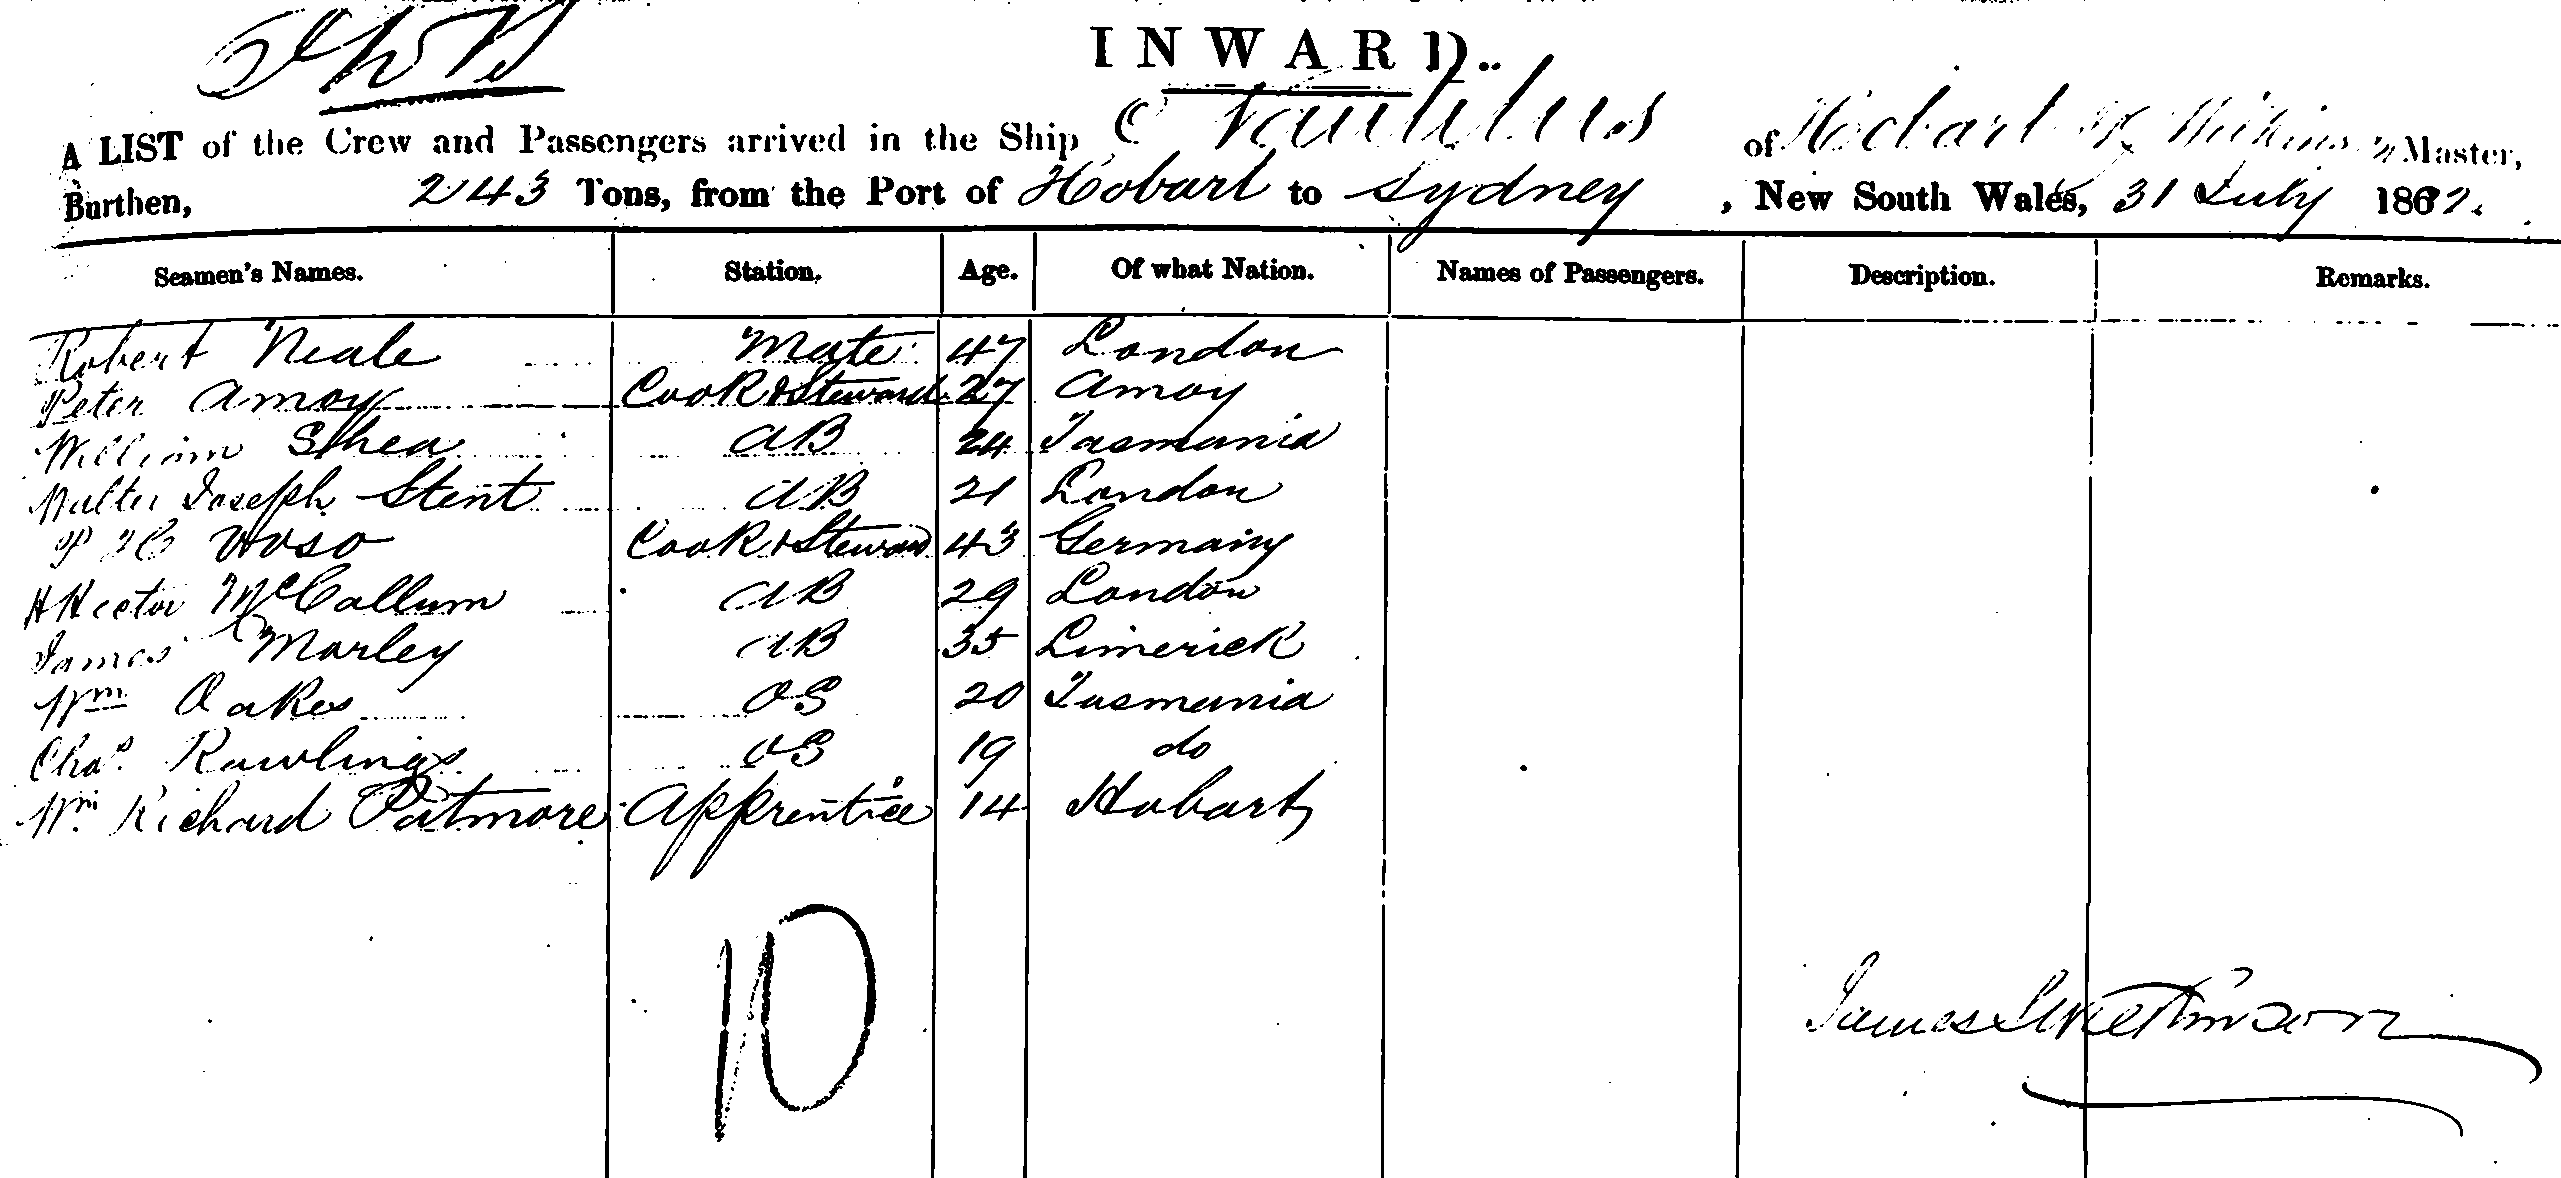 INWARD.
A LIST of the Crew and Passengers arrived in the Ship Nautilus of Hobart Master,
Burthen, 243 Tons, from the Port of Hobart to Sydney, New South Wales, 31 July 186
Seamen's Names. Station. Age. Of what Nation. Names of Passengers. Description. Remarks.
Robert Neale Mate 47 London
Peter Amoy Cook & Steward 27 Amoy
William Shea AB 24 Tasmania
Walter Joseph Stent AB 21 London
Cook & Steward 43 Germany
Hector McCallum AB 29 London
James Morley AB 35 Limerick
Wm Oakes OS 20 Tasmania
Chas. Rawlings OS 19 do
Wm. Richard Patmore Apprentice 14 Hobart
10
James